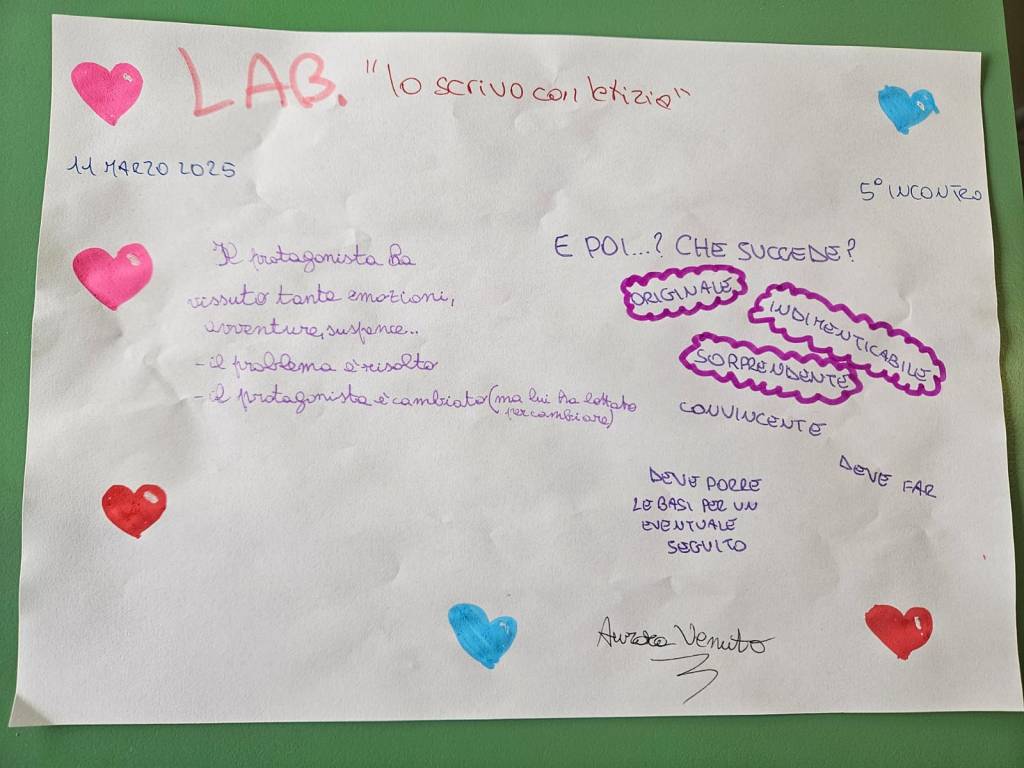 LAB. "Io scrivo con letizia"
11 MARZO 2025
5° INCONTRO
Il protagonista ha
vissuto tante emozioni,
avventure, suspence..
- il problema è risolto
- il protagonista è cambiato (ma lui ha lottato
per cambiare)
E POI...? CHE SUCCEDE?
ORIGINALE
INDIMENTICABILE
SORPRENDENTE
CONVINCENTE
DEVE FAR
DEVE PORRE
LE BASI PER UN
EVENTUALE
SEGUITO
Aurora Venuto